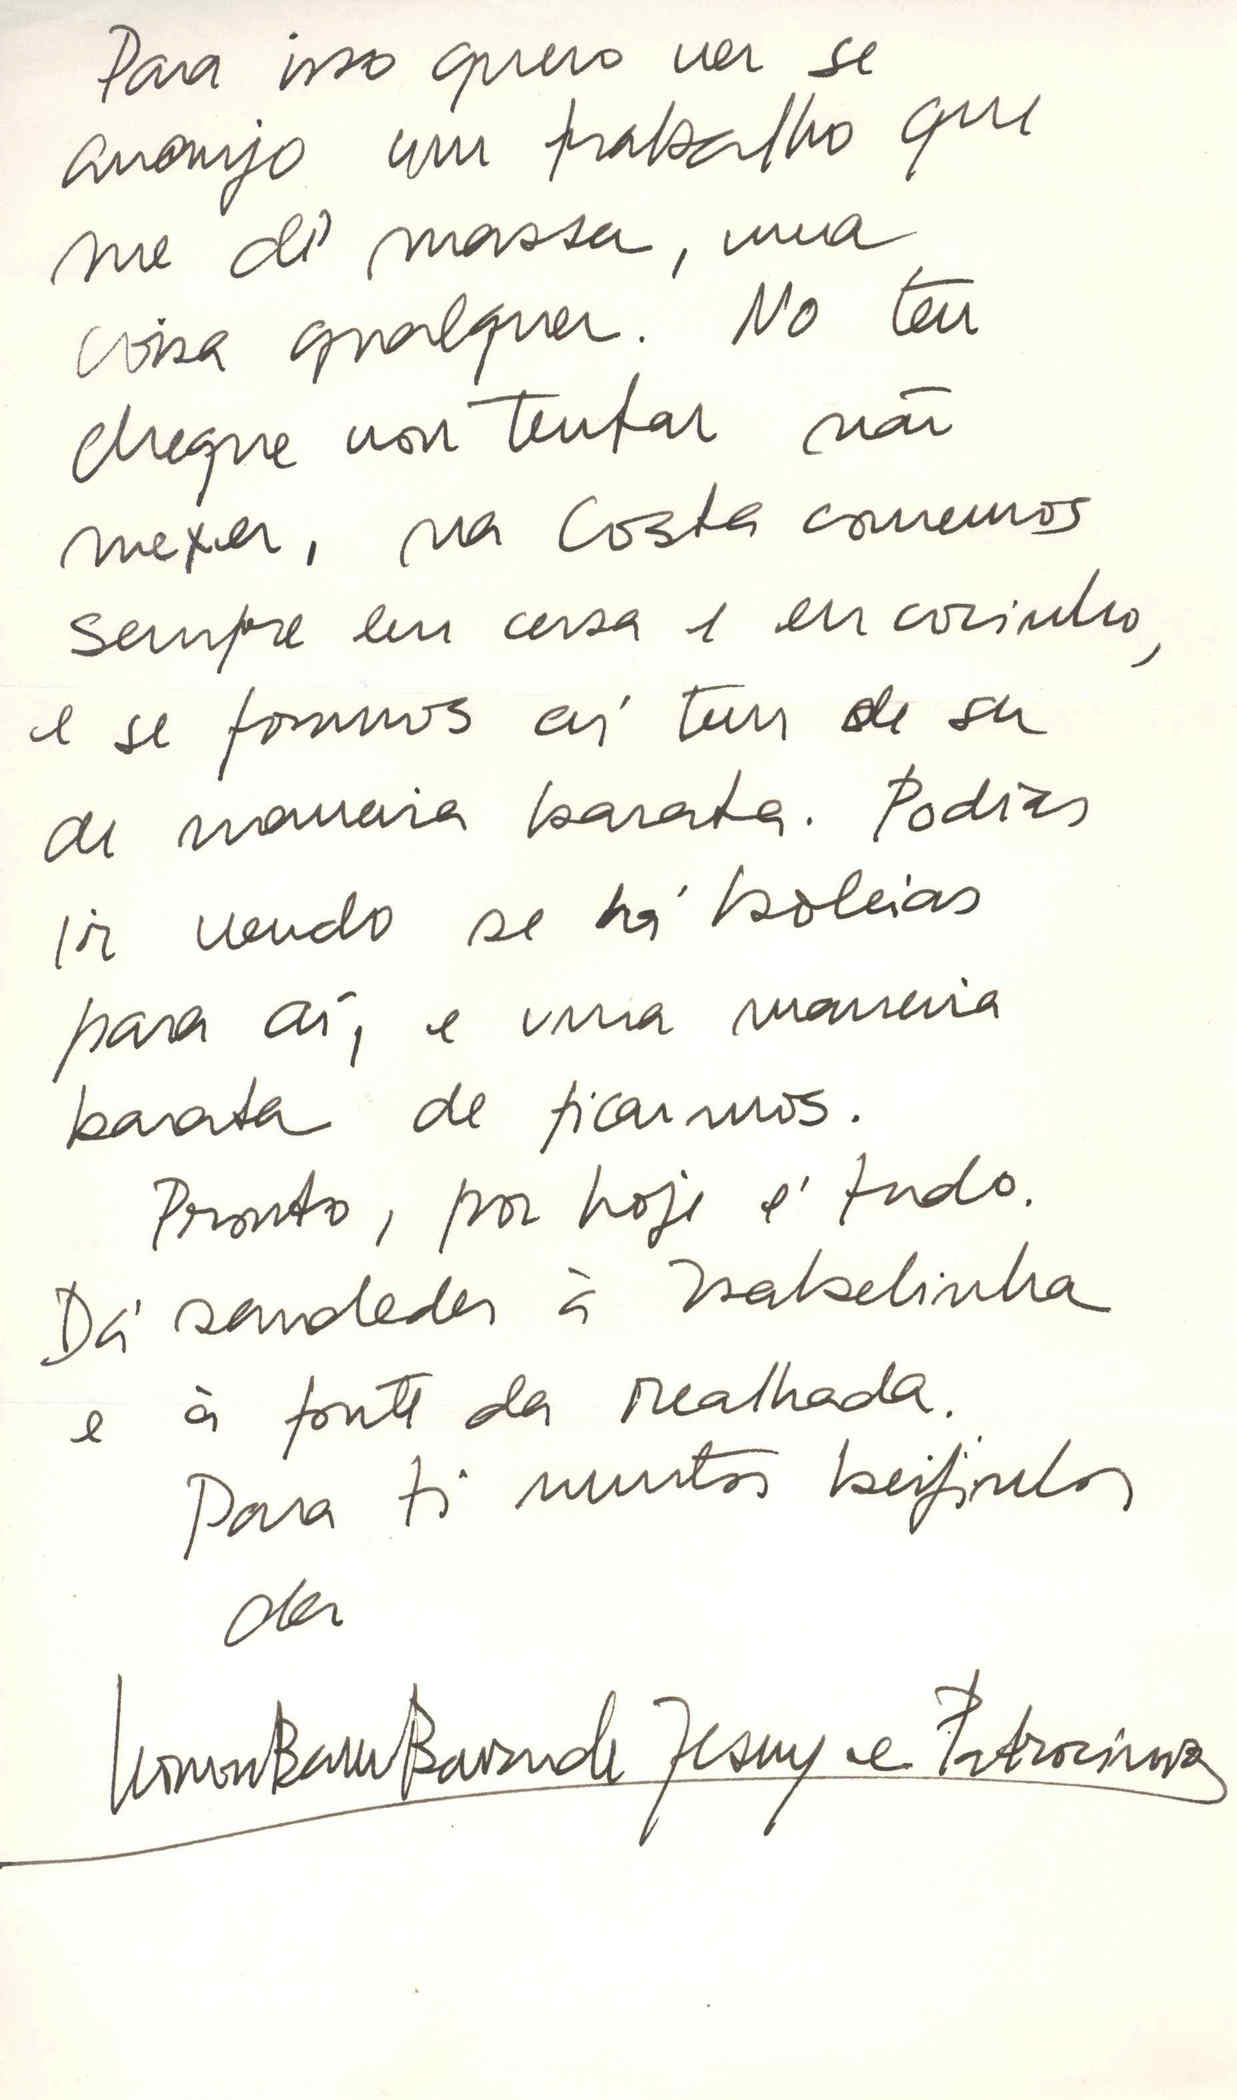 Para isso quero ver se
arranjo um trabalho que
me dê massa, uma
coisa qualquer. No teu
cheque vou tentar não
mexer, na Costa comemos
sempre em casa e eu cozinho,
e se formos aí tem de ser
de maneira barata. Podias
ir vendo se há boleias
para aí, e uma maneira
barata de ficarmos.
Pronto, por hoje é tudo.
Dá saudades à Isabelinha
e à fonte da Mealhada.
Para ti muitos beijinhos
da
Jesus e Patrocínio